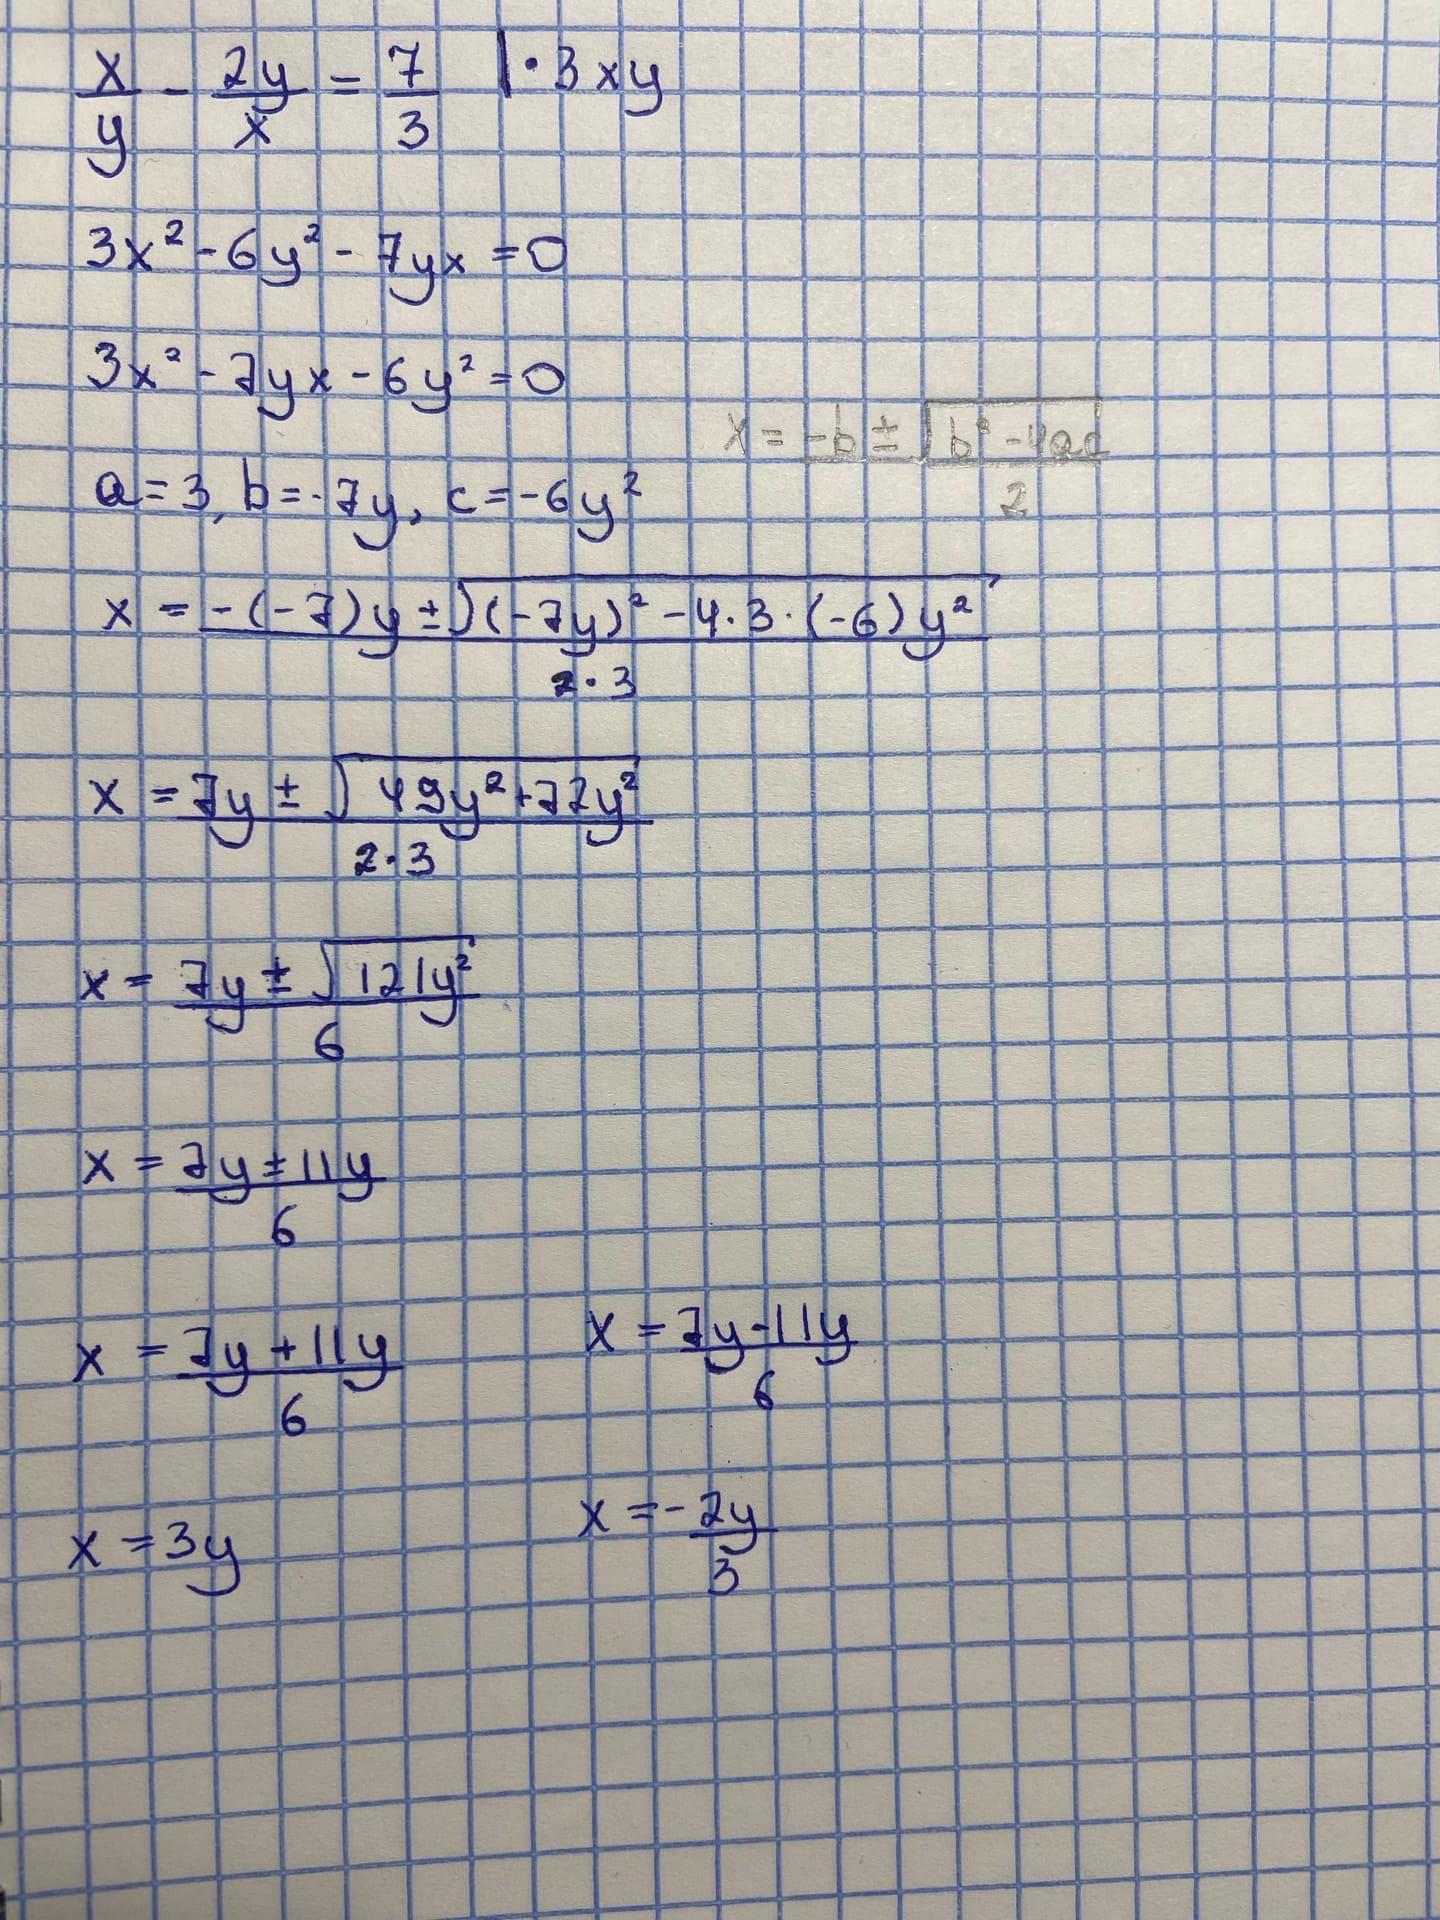 x/y - 2y/x = 7/3 | · 3xy
3x² - 6y² - 7yx = 0
3x² - 7yx - 6y² = 0
x = -b ± √(b² - 4ac) / 2
a = 3, b = -7y, c = -6y²
x = -(-7)y ± √((-7y)² - 4·3·(-6)y²) / 2·3
x = 7y ± √(49y² + 72y²) / 2·3
x = 7y ± √(121y²) / 6
x = 7y ± 11y / 6
x = 7y + 11y / 6
x = 7y - 11y / 6
x = 3y
x = -2y/3